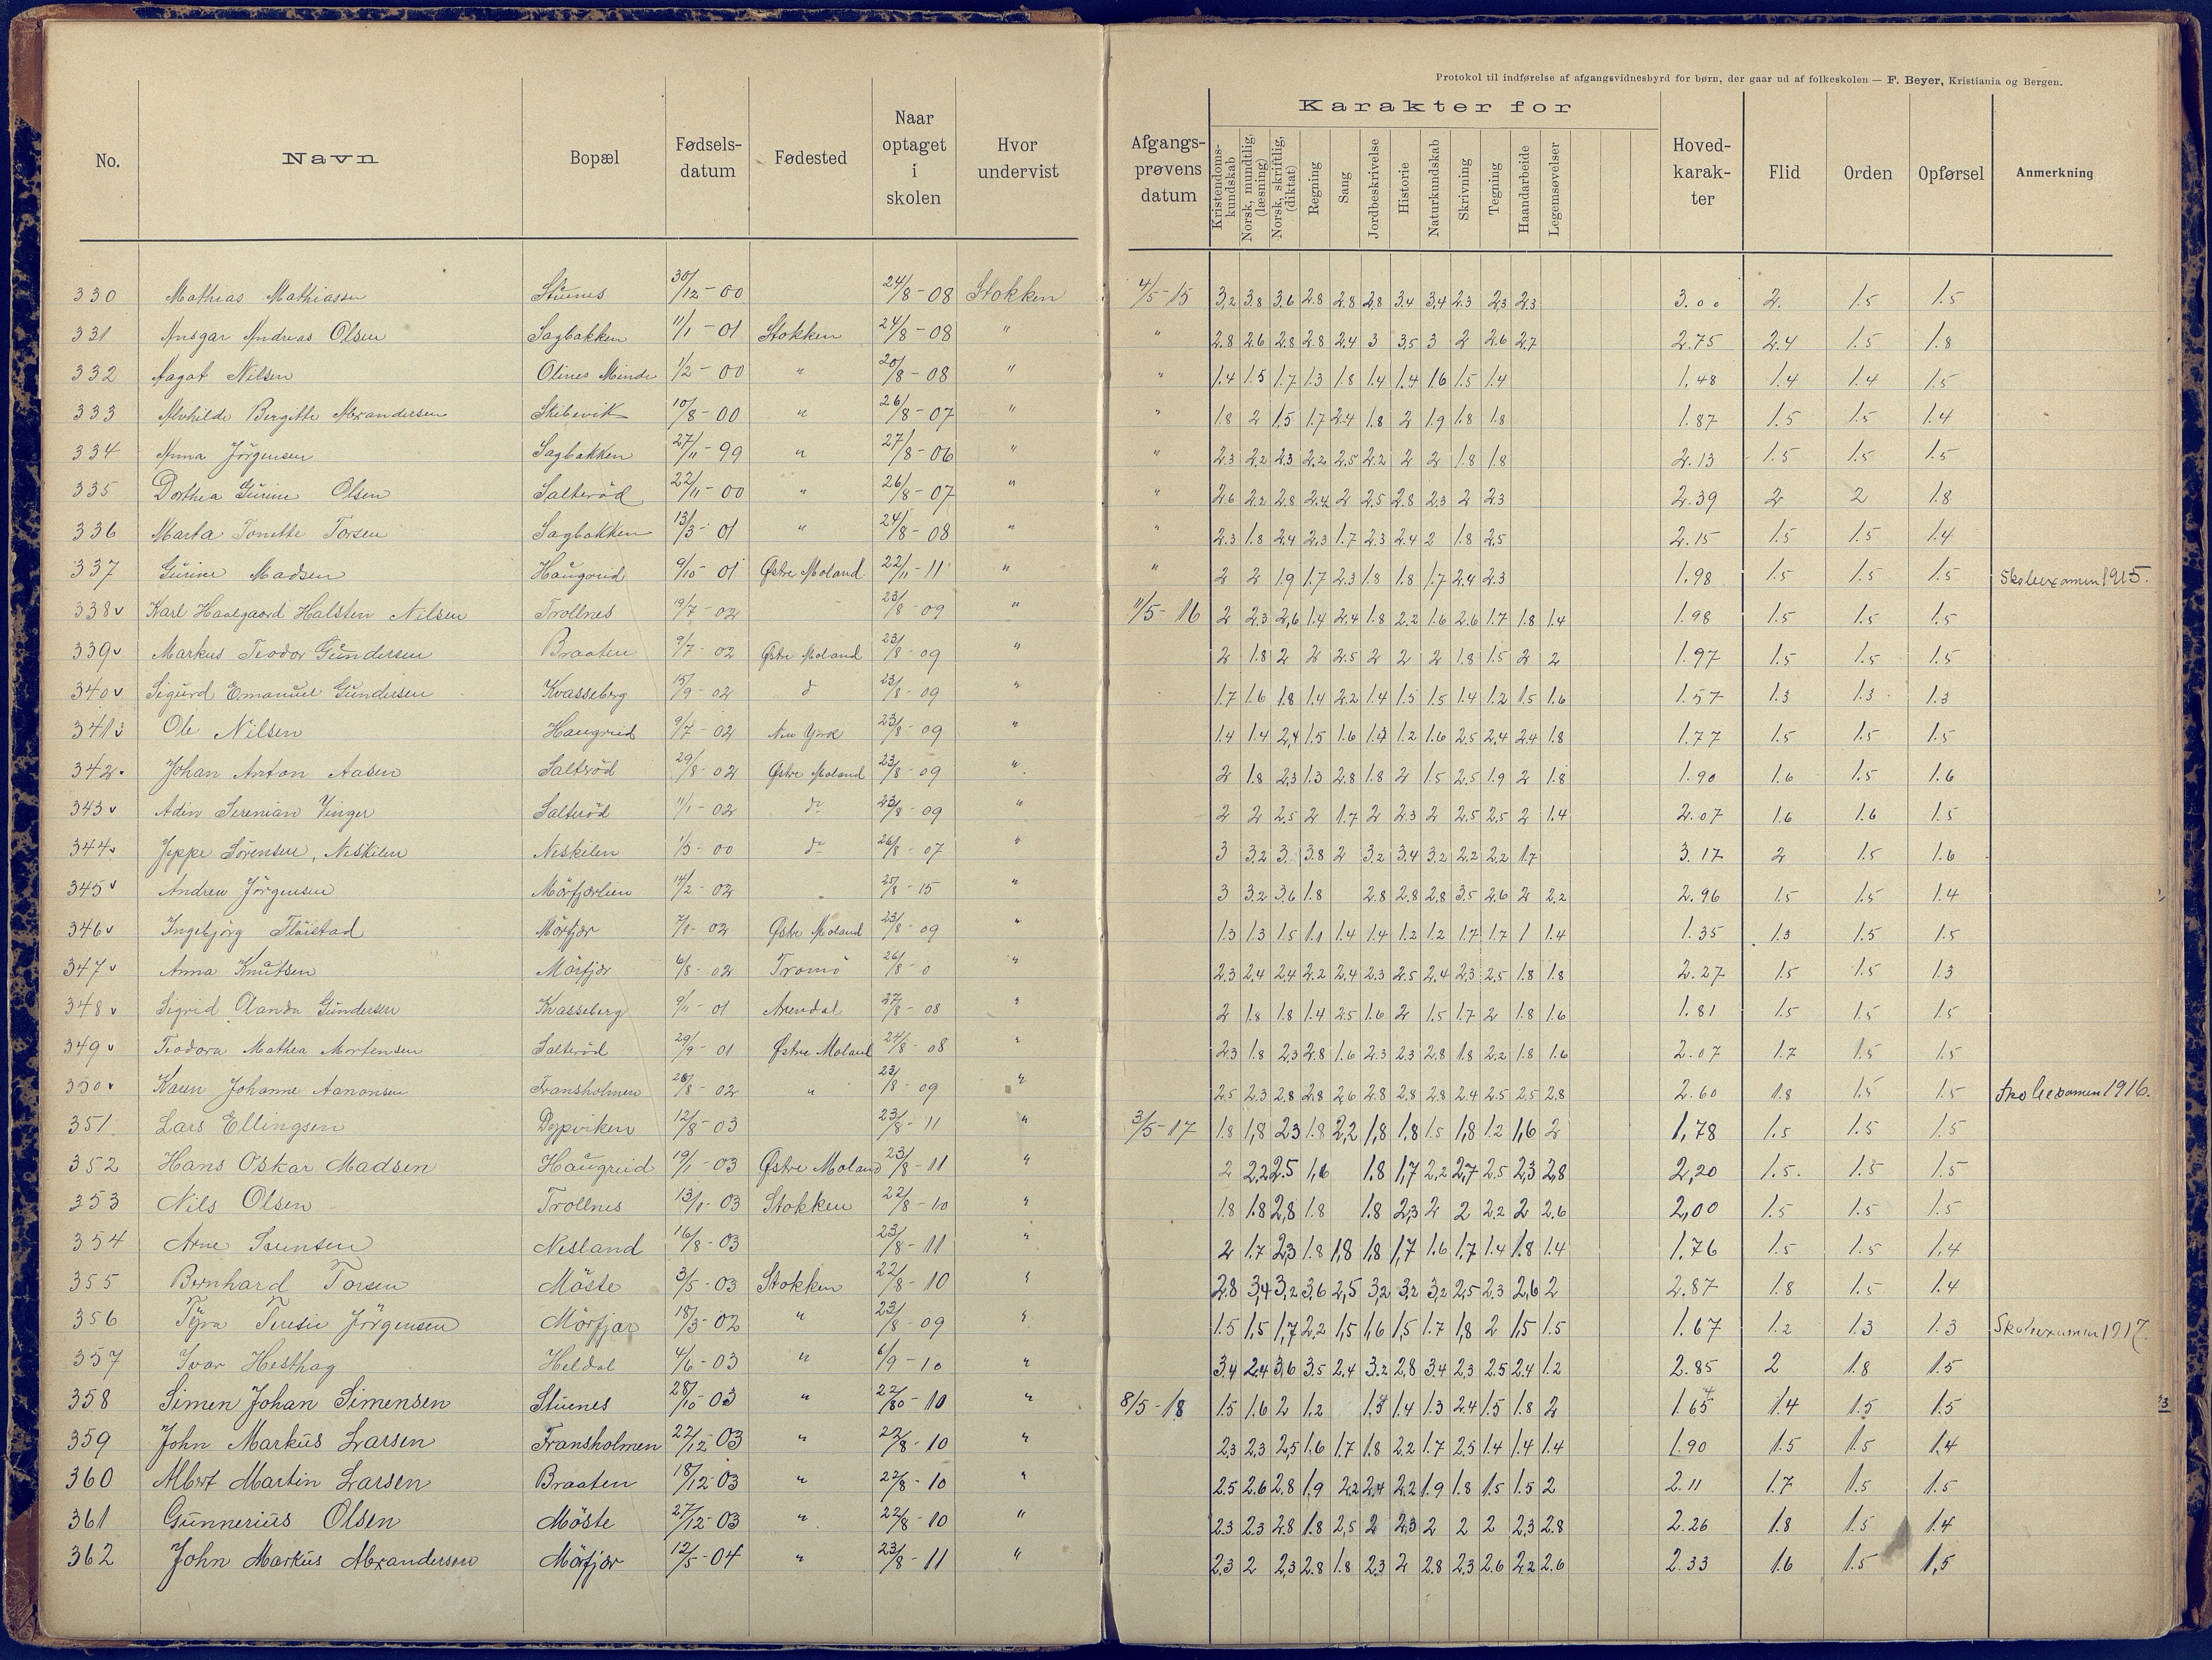 Protokol til indførelse af afgangsvidnesbyrd for børn, der gaar ud af folkeskolen — F. Beyer, Kristiania og Bergen.
No. Navn Bopæl Fødsels-datum Fødested Naar optaget i skolen Hvor undervist Afgangs-prøvens datum Karakter for Kristendoms-kundskab Norsk, mundtlig, (læsning) Norsk, skriftlig, (diktat) Regning Sang Jordbeskrivelse Historie Naturkundskab Skrivning Tegning Haandarbeide Legemsøvelser Hoved-karak-ter Flid Orden Opførsel Anmerkning
330 Mathias Mathiassen Stuenes 30/12-00 24/8-08 Stokken 4/5-15 3,2 3.8 3.6 2.8 2.8 2.8 3.4 3.4 2.3 2,3 2.3 3.00 2. 1.5 1.5
331 Ansgar Andreas Olsen Sagbakken 11/1-01 Stokken 24/8-08 " " 2.8 2.6 2.8 2.8 2.4 3 3.5 3 2 2.6 2.7 2.75 2.4 1.5 1.8
332 Aagot Nilsen Olines Minde 1/2-00 " 20/8-08 " " 1.4 1.5 1.7 1.3 1.8 1.4 1.4 1.6 1.5 1.4 1.48 1.4 1.4 1.5
333 Alvhilde Bergitte Alexandersen Skibevik 10/8-00 " 26/8-07 " " 1.8 2 1,5 1.7 2.4 1.8 2 1.9 1.8 1.8 1.87 1.5 1.5 1.4
334 Anna Jörgensen Sagbakken 27/11-99 " 27/8-06 " " 2.3 2.2 2.3 2.2 2.5 2.2 2 2 1.8 1.8 2.13 1.5 1.5 1.5
335 Dorthea Gurine Olsen Salteröd 22/11-00 " 26/8-07 " " 2.6 2.2 2.8 2.4 2 2.5 2.8 2.3 2 2.3 2.39 2 2 1.8
336 Marta Tonette Torsen Sagbakken 13/3-01 " 24/8-08 " " 2.3 1.8 2.4 2.3 1.7 2.3 2.4 2 1.8 2.5 2.15 1.5 1.5 1.4
337 Gurine Madsen Haugrud 9/10-01 Østre Moland 22/11-11 " " 2 2 1.9 1.7 2.3 1.8 1.8 1.7 2.4 2.3 1.98 1.5 1.5 1.5 Skoleexamen 1915.
338v Karl Haalgaard Halsten Nilsen Trollnes 19/7-02 23/8-09 " 11/5-16 2 2.3 2,6 1.4 2.4 1.8 2.2 1.6 2.6 1.7 1.8 1.4 1.98 1.5 1.5 1.5
339v Markus Teodor Gundersen Braaten 9/7-02 Østre Moland 23/8-09 " 2 1.8 2 2 2.5 2 2 2 1.8 1.5 2 2 1.97 1.5 1.5 1.5
340v Sigurd Emanuel Gundersen Kvasseberg 15/9-02 d 23/8-09 " 1.7 1.6 1.8 1.4 2.2 1.4 1.5 1.5 1.4 1.2 1.5 1.6 1.57 1.3 1.3 1.3
341 Ole Nilsen Haugrud 9/7-02 New York 23/8-09 " 1.4 1.4 2,4 1.5 1.6 1.3 1.2 1.6 2.5 2,4 2.4 1.8 1.77 1.5 1.5 1.5
342. Johan Anton Aasen Salteröd 29/8-02 Østre Moland 23/8-09 " 2 1.8 2.3 1.3 2.8 1.8 2 1.5 2.5 1.9 2 1.8 1.90 1.6 1.5 1.6
343v Adin Serenian Vinger Salteröd 11/1-02 do 23/8-09 " 2 2 2.5 2 1.7 2 2.3 2 2.5 2.5 2 1.4 2.07 1.6 1.6 1.5
344v Jeppe Sörensen, Neskilen Neskilen 1/5-00 do 26/8-07 " 3 3.2 3. 3.8 2 3.2 3.4 3.2 2.2 2.2 1.7 3.17 2 1.5 1.6
345v Andrew Jörgensen Mörfjærlien 14/2-02 25/8-15 " 3 3.2 3.6 1.8 2.8 2.8 2.8 3.5 2.6 2 2.2 2.96 1.5 1.5 1.4
346v Ingebjörg Flöistad Mörfjær 7/1-02 Østre Moland 23/8-09 " 1.3 1.3 1.5 1.1 1.4 1.4 1.2 1.2 1.7 1.7 1 1.4 1.35 1.3 1.5 1.5
347v Anna Knutsen Mörfjær 6/8-02 Tromö 26/8-0 " 2.3 2,4 2.4 2.2 2.4 2.3 2.5 2.4 2.3 2.5 1.8 1.8 2.27 1.5 1.5 1.3
348v Sigrid Olanda Gundersen Kvasseberg 9/11-01 Arendal 27/8-08 " 2 1.8 1.8 1.4 2.5 1.6 2 1.5 1.7 2 1.8 1.6 1.81 1.5 1.5 1.5
349v Teodora Mathea Mortensen Salteröd 29/9-01 Østre Moland 24/8-08 " 2.3 1.8 2.3 2.8 1.6 2.3 2.3 2.8 1.8 2.2 1.8 1.6 2.07 1.7 1.5 1.5
350v Karen Johanne Aanonsen Fransholmen 26/8-02 " 23/8-09 " 2.5 2.3 2.8 2.8 2.6 2.8 2.8 2.8 2.4 2.5 2.5 2.8 2.60 1.8 1.5 1.5 Skoleexamen 1916.
351. Lars Ellingsen Dypviken 12/8-03 23/8-11 " 3/5-17 1.8 1,8 2.3 1.8 2,2 1,8 1.8 1.5 1,8 1.2 1,6 2 1,78 1.5 1.5 1.5
352 Hans Oskar Madsen Haugrud 19/1-03 Østre Moland 23/8-11 " 2 2,2 2.5 1,6 1.8 1,7 2,2 2,7 2.5 2,3 2,8 2,20 1.5. 1.5 1.5
353 Nils Olsen Trollnes 13/1-03 Stokken 22/8-10 " 1.8 1.8 2,8 1.8 1.8 2,3 2 2 2.2 2 2.6 2,00 1.5 1.5 1.5
354 Arne Sörensen Nesland 16/8-03 23/8-11 " 2 1.7 2,3 1.8 1,8 1,8 1,7 1.6 1.7 1.4 1.8 1.4 1.76 1.5 1.5 1,4
355 Bernhard Torsen Möste 3/5-03 Stokken 22/8-10 " 2.8 3,4 3,2 3.6 2,5 3,2 3,2 3,2 2,5 2.3 2,6 2 2.87 1.8 1.5 1.4
356 Tyra Teresie Jörgensen Mörfjær 18/3-02 " 23/8-09 " 1.5 1,5 1,7 2,2 1,5 1,6 1,5 1.7 1,8 2 1.5 1.5 1.67 1.2 1.3 1.3 Skoleexamen 1917.
357 Ivar Hesthag Heldal 4/6-03 " 6/9-10 " 3.4 2.4 3,6 3.5 2.4 3.2 2,8 3.4 2,3 2.5 2.4 1.2 2.85 2 1.8 1.5
358 Simen Johan Simensen Stuenes 28/10-03 " 22/80-10 " 8/5-18 1.5 1.6 2 1.2 1.4 1.3 2.4 1.5 1.8 2 1.65 1.4 1.5 1.5
359 John Markus Larsen Fransholmen 22/12-03 " 22/8-10 " 2.3 2.3 2,5 1.6 1.7 1.8 2.2 1.7 2.5 1.4 1.4 1.4 1.90 1.5 1.5 1.4
360 Albert Martin Larsen Braaten 18/12-03 " 22/8-10 " 2.5 2.6 2.8 1,9 2,2 2,4 2.2 1.9 1.8 1.5 1.5 2 2.11 1.7 1.5 1.5
361 Gunnerius Olsen Möste 27/12-03 " 22/8-10 " 2.3 2.3 2.8 1.8 2,5 2 2,3 2 2 2 2,3 2.8 2.26 1.8 1.5 1.4
362 John Markus Alexandersen Mörfjær 12/5-04 " 23/8-11 " 2.3 2 2,3 2.8 1.8 2,3 2 2.8 2.3 2.6 2.2 2.6 2.33 1.6 1.5 1,5